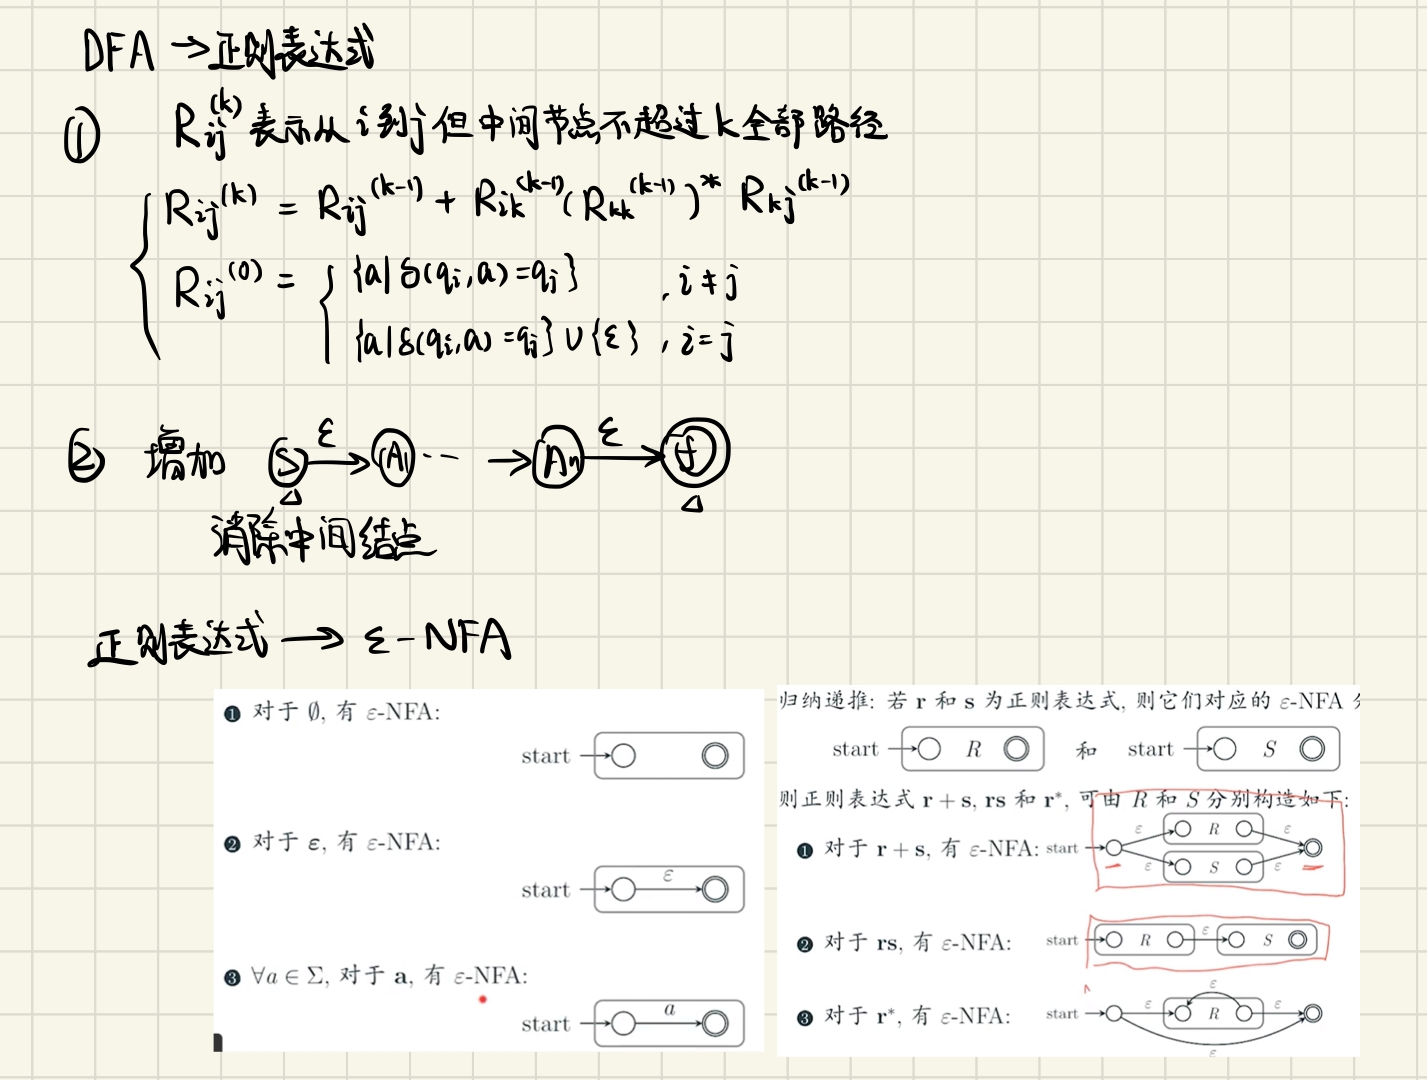 DFA →正则表达式
① Rij^(k) 表示从 i 到 j 但中间节点不超过 k 全部路径
Rij^(k) = Rij^(k-1) + Rik^(k-1) (Rkk^(k-1))* Rkj^(k-1)
Rij^(0) = { {a|δ(qi,a)=qj} , i≠j
{a|δ(qi,a)=qj}∪{ε} , i=j
② 增加 S ε A1 ··· → An ε f
消除中间结点
正则表达式 → ε-NFA
❶ 对于 ∅, 有 ε-NFA:
start
❷ 对于 ε, 有 ε-NFA:
start ε
❸ ∀a ∈ Σ, 对于 a, 有 ε-NFA:
start a
归纳递推: 若 r 和 s 为正则表达式, 则它们对应的 ε-NFA
start R 和 start S
则正则表达式 r + s, rs 和 r*, 可由 R 和 S 分别构造如下:
❶ 对于 r + s, 有 ε-NFA: start ε R ε ε S ε
❷ 对于 rs, 有 ε-NFA: start R ε S
❸ 对于 r*, 有 ε-NFA: start ε R ε ε ε